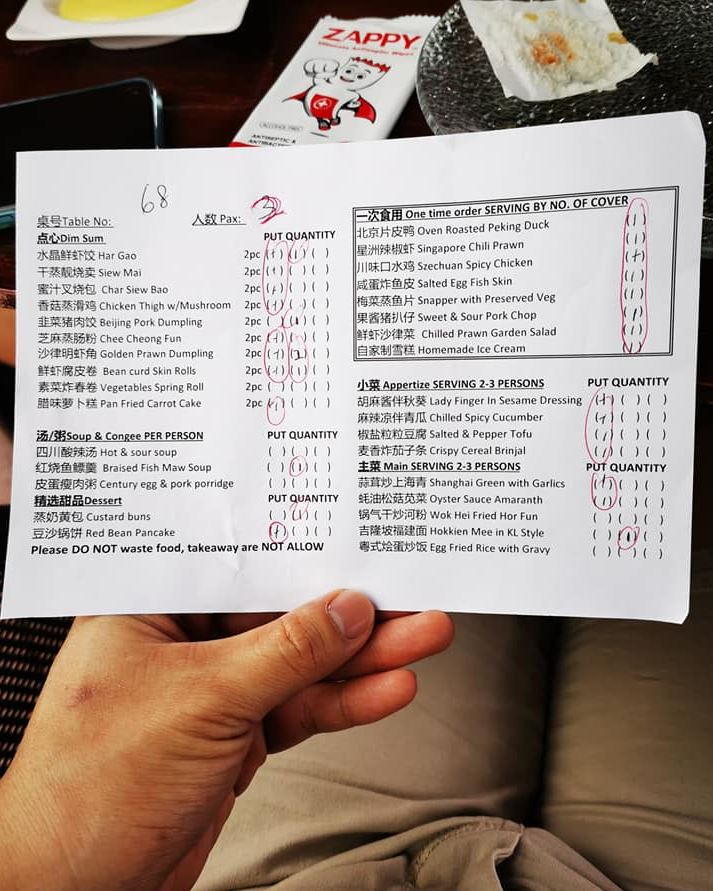 ZAPPY
Ultimate Antiseptic Wipes
ALCOHOL FREE
ANTISEPTIC &
68
桌号Table No: 人数 Pax: 3
点心Dim Sum PUT QUANTITY
水晶鲜虾饺 Har Gao 2pc (1) (1) ( )
干蒸靓烧卖 Siew Mai 2pc (1) ( ) ( )
蜜汁叉烧包 Char Siew Bao 2pc (1) ( ) ( )
香菇蒸滑鸡 Chicken Thigh w/Mushroom 2pc (1) ( ) ( )
韭菜猪肉饺 Beijing Pork Dumpling 2pc ( ) (1) ( )
芝麻蒸肠粉 Chee Cheong Fun 2pc (1) ( ) ( )
沙律明虾角 Golden Prawn Dumpling 2pc (1) (2) ( )
鲜虾腐皮卷 Bean curd Skin Rolls 2pc (1) (1) ( )
素菜炸春卷 Vegetables Spring Roll 2pc ( ) ( ) ( )
腊味萝卜糕 Pan Fried Carrot Cake 2pc (1) ( ) ( )
汤/粥Soup & Congee PER PERSON PUT QUANTITY
四川酸辣汤 Hot & sour soup ( ) ( ) ( )
红烧鱼鳔羹 Braised Fish Maw Soup ( ) (1) ( )
皮蛋瘦肉粥 Century egg & pork porridge ( ) ( ) ( )
精选甜品Dessert PUT QUANTITY
蒸奶黄包 Custard buns ( ) (1) ( )
豆沙锅饼 Red Bean Pancake (1) ( ) ( )
Please DO NOT waste food, takeaway are NOT ALLOW
一次食用 One time order SERVING BY NO. OF COVER
北京片皮鸭 Oven Roasted Peking Duck (1)
星洲辣椒虾 Singapore Chili Prawn (1)
川味口水鸡 Szechuan Spicy Chicken (1)
咸蛋炸鱼皮 Salted Egg Fish Skin (1)
梅菜蒸鱼片 Snapper with Preserved Veg (1)
果酱猪扒仔 Sweet & Sour Pork Chop (1)
鲜虾沙律菜 Chilled Prawn Garden Salad (1)
自家制雪糕 Homemade Ice Cream (1)
小菜 Appertize SERVING 2-3 PERSONS PUT QUANTITY
胡麻酱伴秋葵 Lady Finger In Sesame Dressing (1) ( ) ( )
麻辣凉伴青瓜 Chilled Spicy Cucumber (1) ( ) ( )
椒盐粒粒豆腐 Salted & Pepper Tofu (1) ( ) ( )
麦香炸茄子条 Crispy Cereal Brinjal (1) ( ) ( )
主菜 Main SERVING 2-3 PERSONS PUT QUANTITY
蒜茸炒上海青 Shanghai Green with Garlics (1) ( ) ( )
蚝油松菇苋菜 Oyster Sauce Amaranth (1) ( ) ( )
锅气干炒河粉 Wok Hei Fried Hor Fun ( ) ( ) ( )
吉隆坡福建面 Hokkien Mee in KL Style ( ) (1) ( )
粤式烩蛋炒饭 Egg Fried Rice with Gravy ( ) ( ) ( )